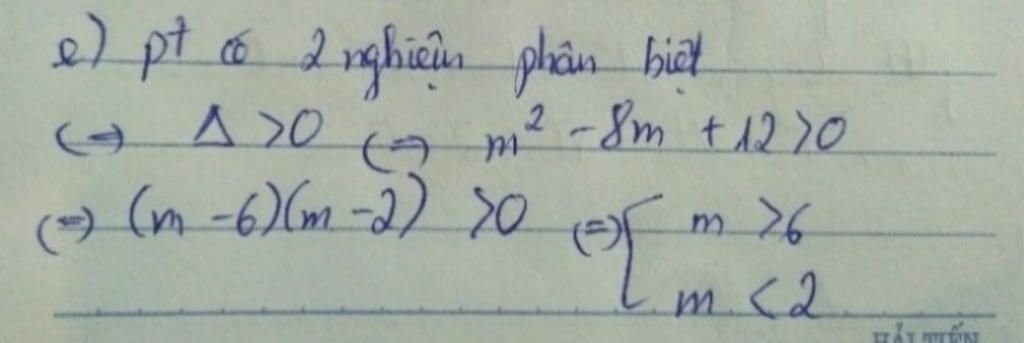 e) pt có 2 nghiệm phân biệt
(=) Δ >0 (=) m² - 8m + 12 >0
(=) (m - 6)(m - 2) >0 (=) [ m >6
m < 2
HẢI TIẾN